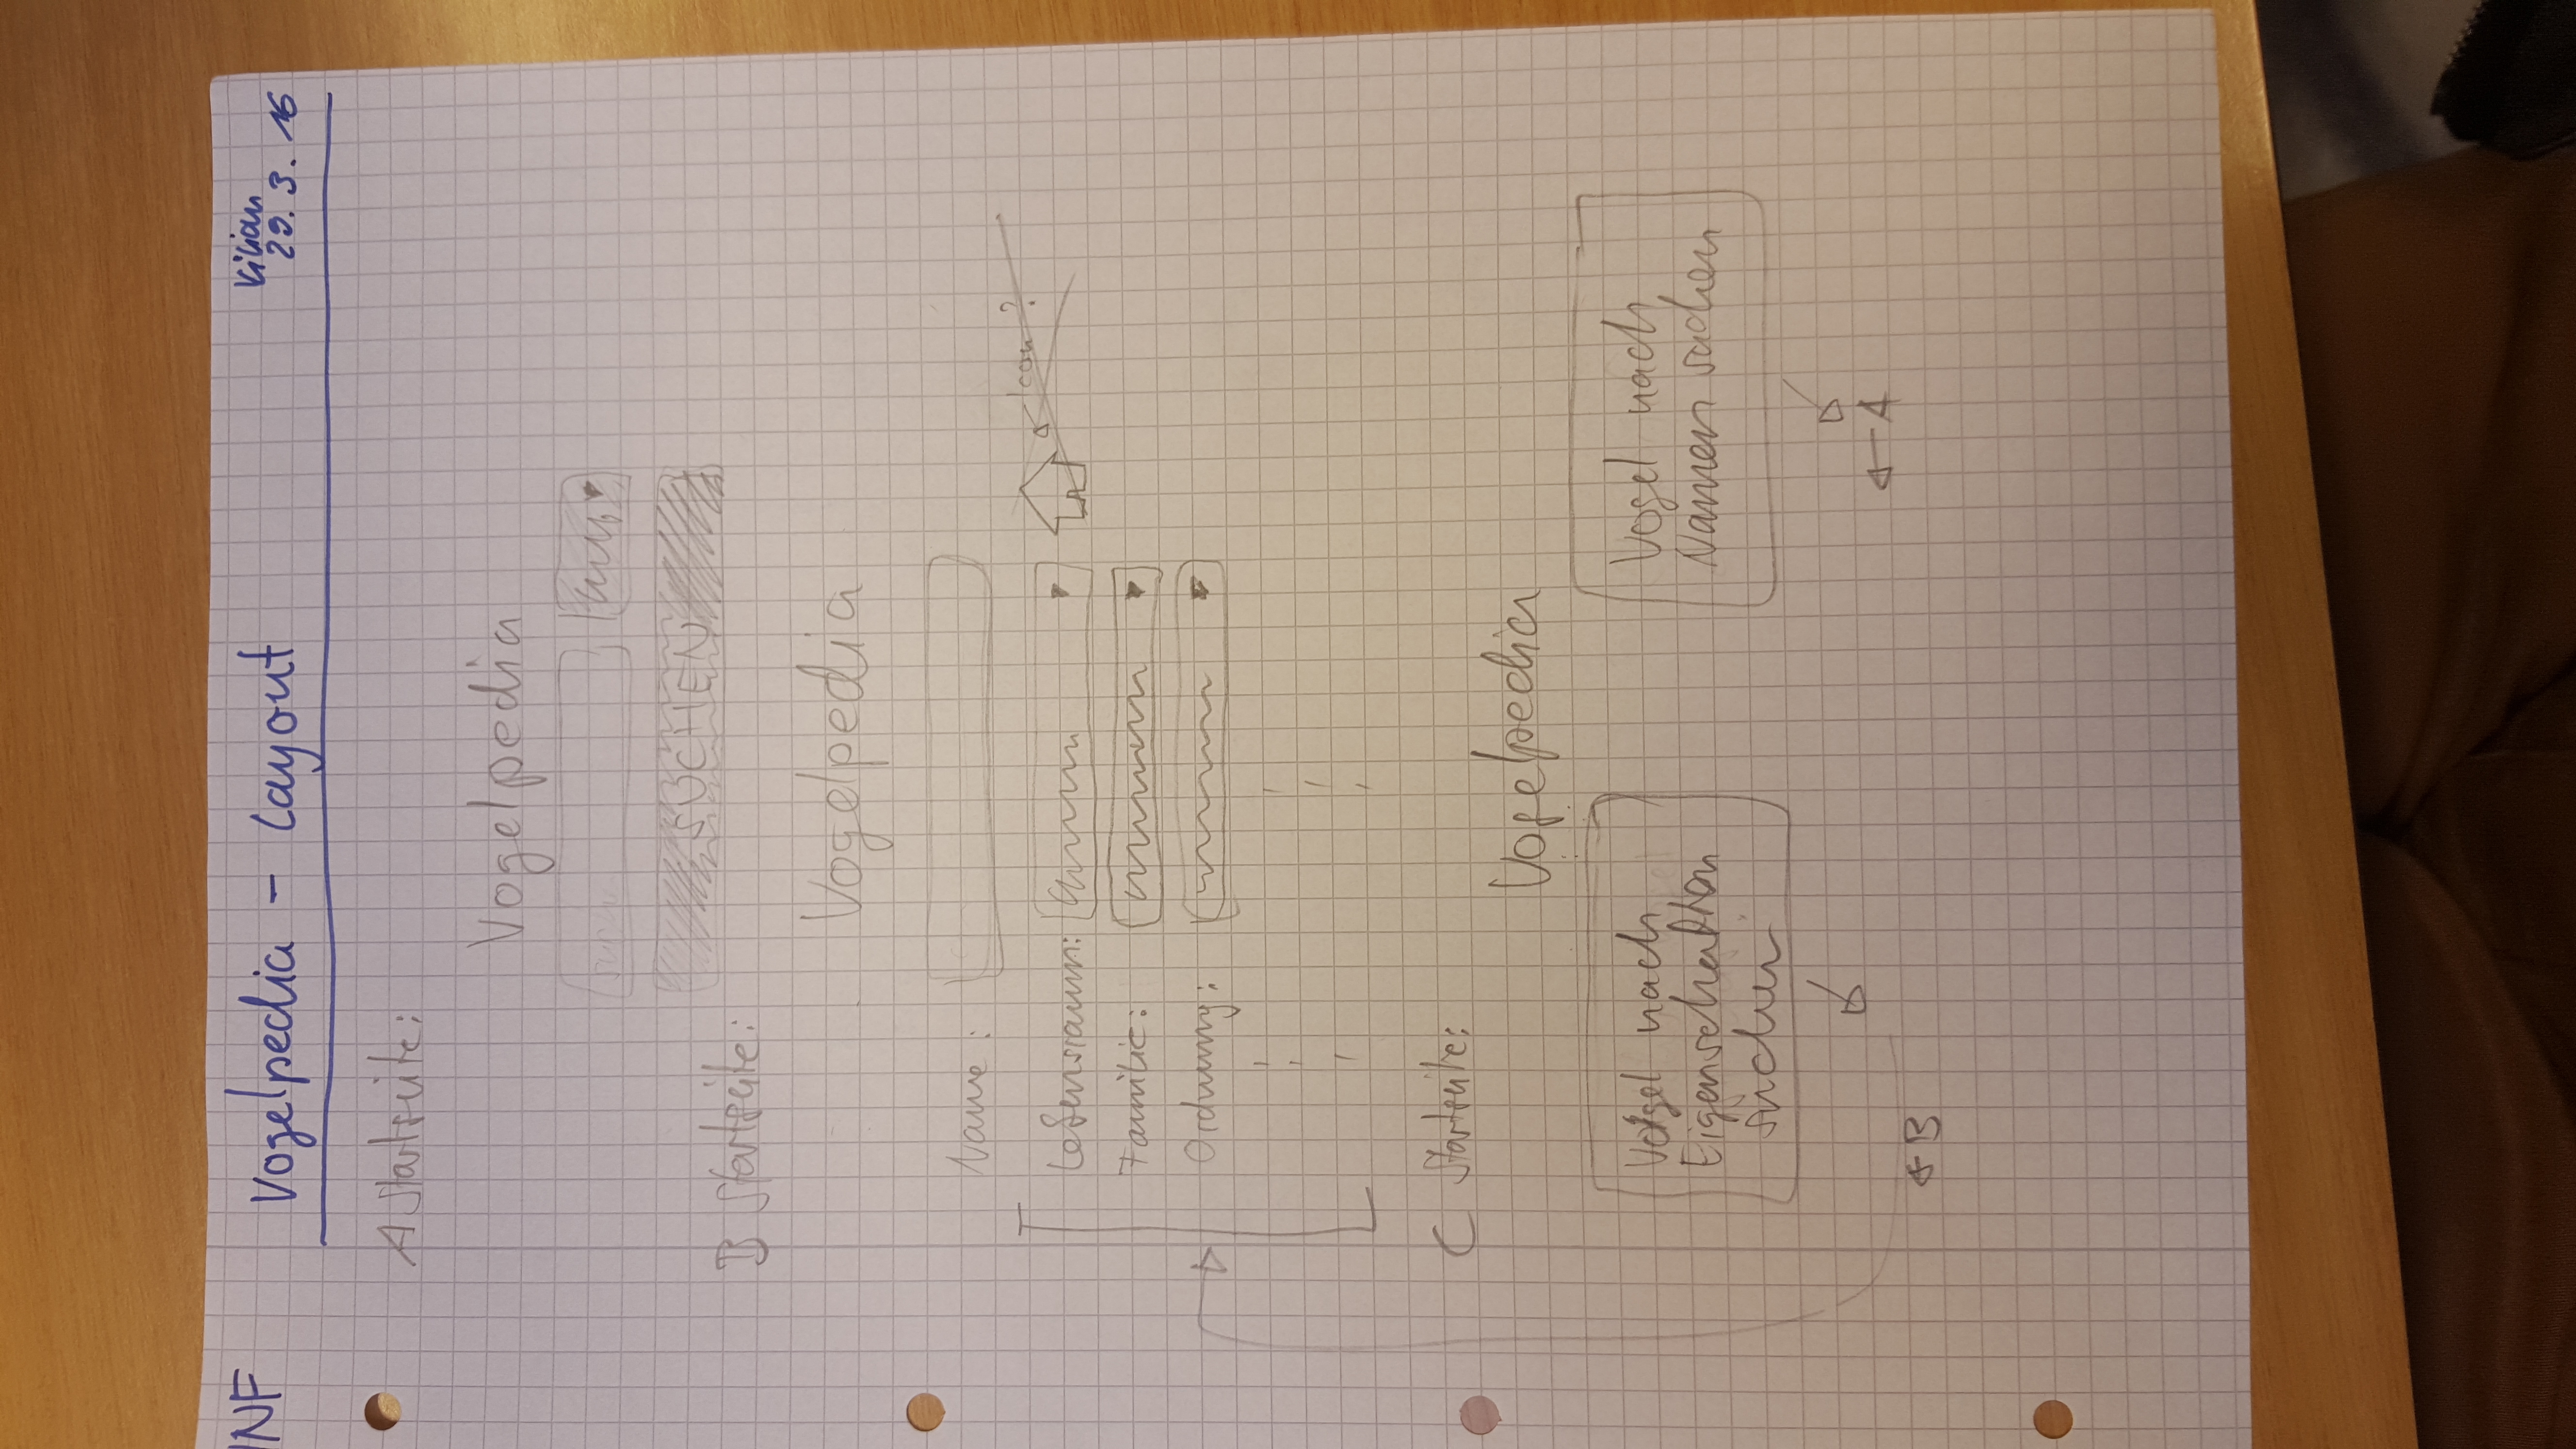 INF
Vogelpedia - Layout
Kilian
29.3.16
A Startseite:
Vogelpedia
SUCHEN
B Startseite:
Vogelpedia
Name:
Lebensraum:
Icon?
Familie:
Ordnung:
C Startseite:
Vogelpedia
Vogel nach
Eigenschaften
suchen
Vogel nach
Namen suchen
A
B